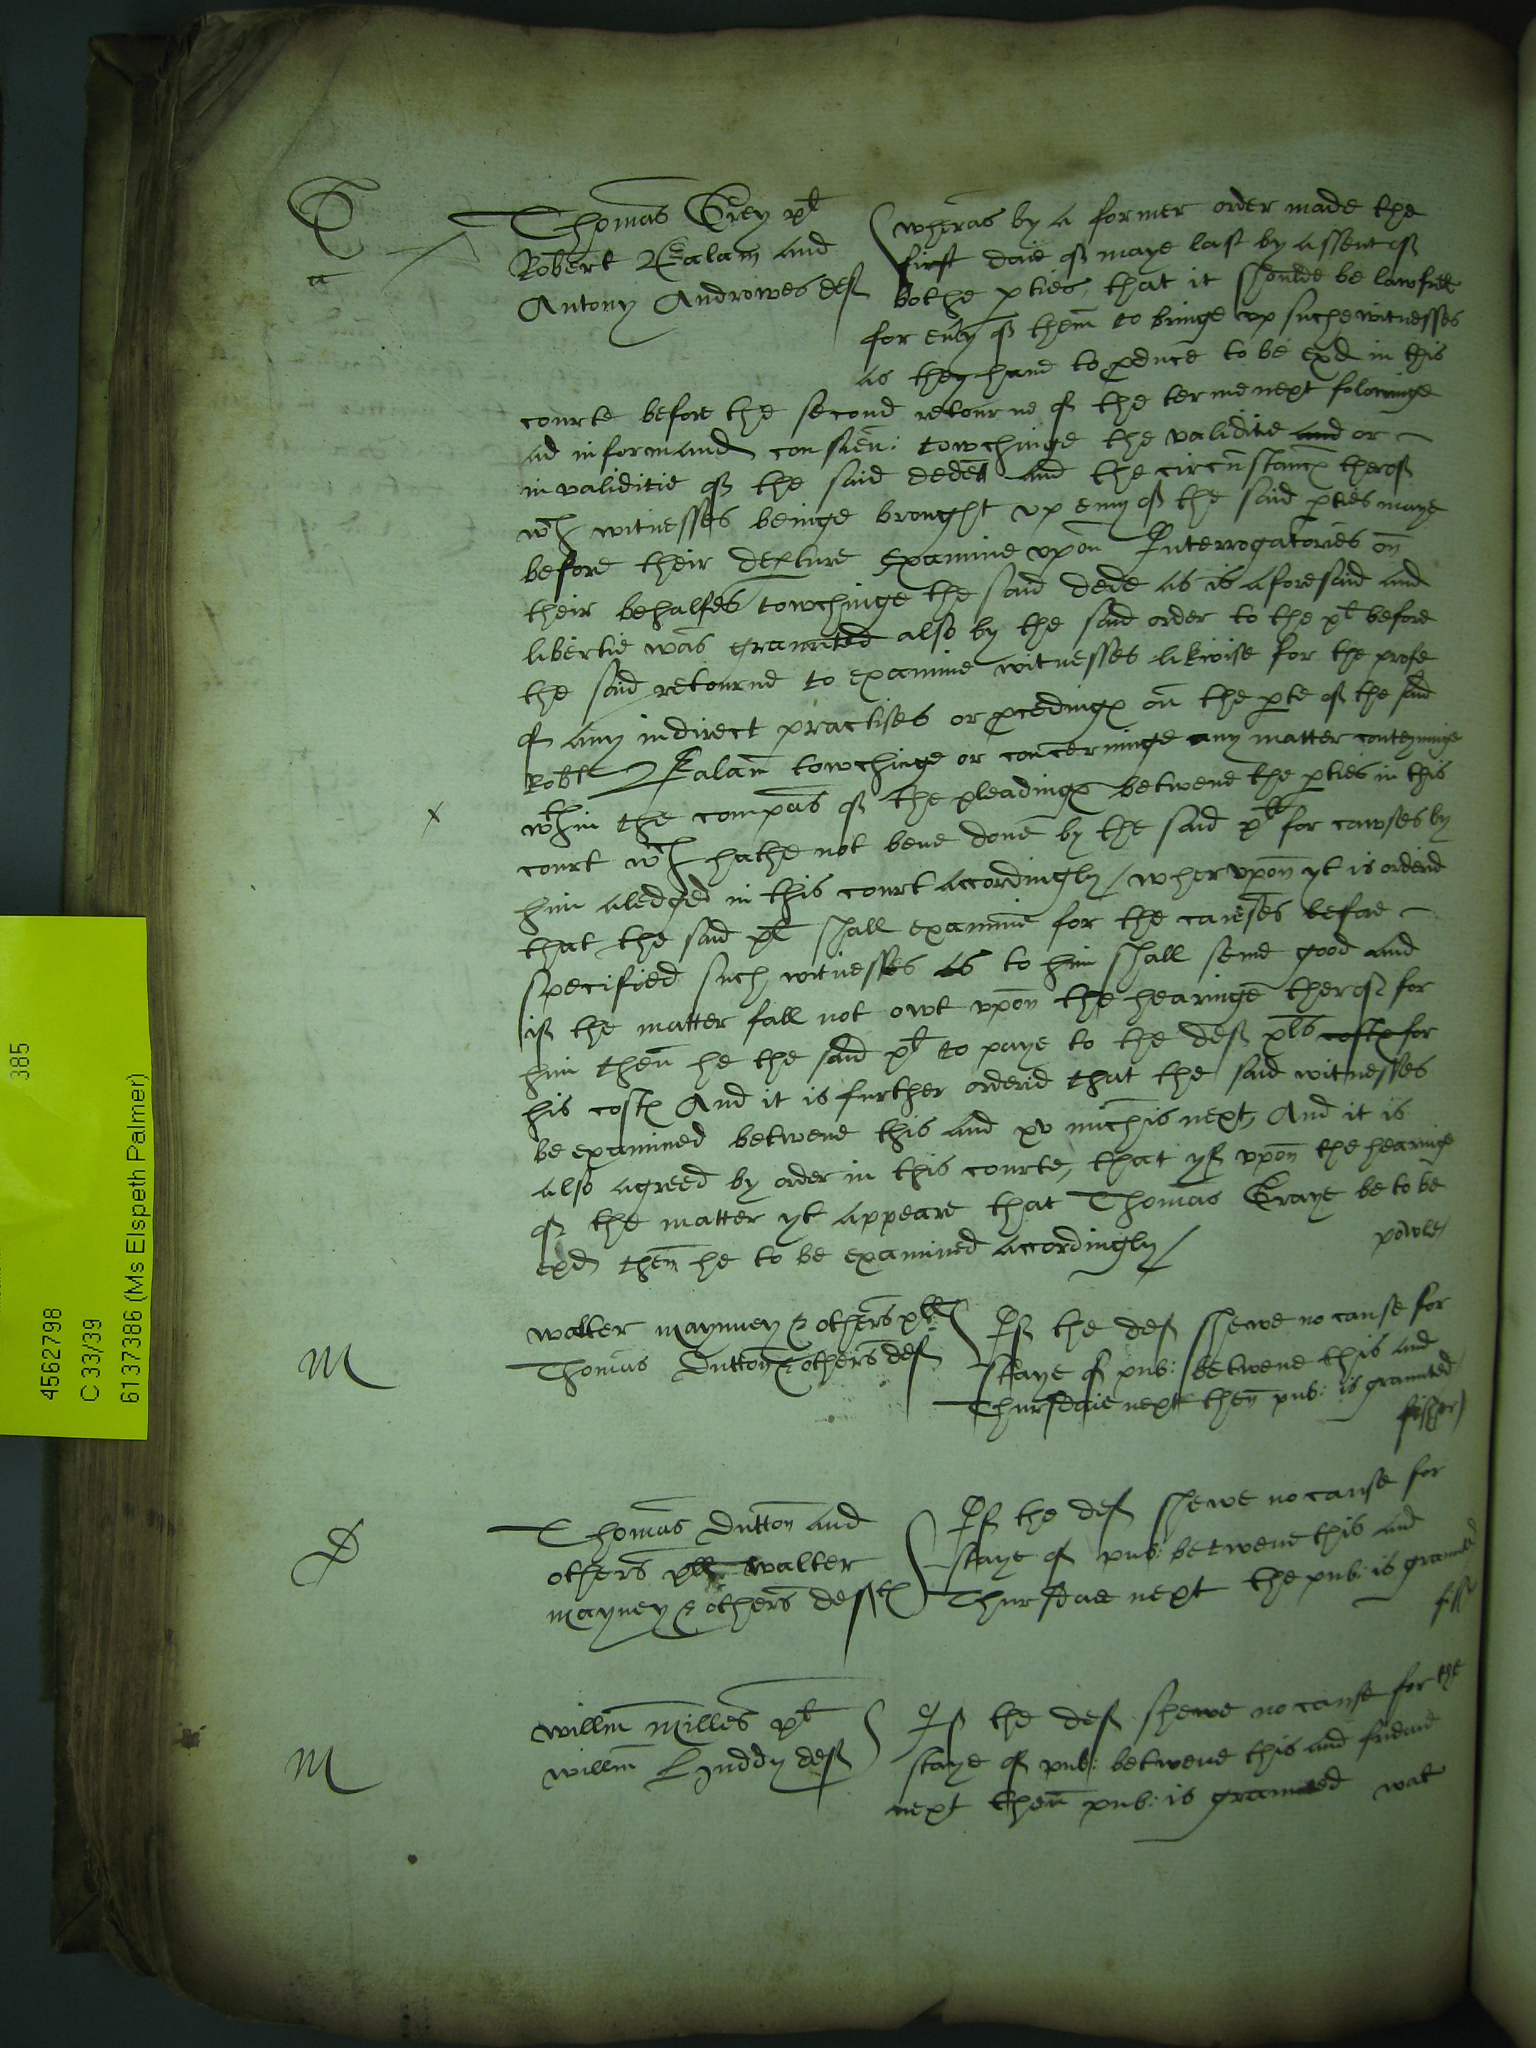 G
a
Thomas Grey pl
Robert Ealam and
Antony Androwes def
wheras by a former order made the
first daie of maye last by assent of
bothe pties, that it shoulde be lawfull
for euy of them to bringe vp suche witnesses
as they haue to pduce to be exd in this
courte before the second retourne of the terme next folowinge
ad informand conscien: towchinge the validitie and or
invaliditie of the said dede and the circunstanc therof
wch witnesses beinge brought vp euy of the said pties maye
before their depture Examine vpon Interrogatories on
their behalfes towchinge the said dede as is aforesaid and
libertie was graunted also by the said order to the pl before
the said retourne to examine witnesses likwise for the profe
of any indirect practises or pcedings on the pte of the said
Robt Ealam towchinge or concerninge any matter conteyninge
x
wthin the compas of the pleadings betwene the pties in this
court wch hathe not bene done by the said pl for cawses by
him aledged in this court accordingly / wher vpon yt is orderid
that the said pl shall examine for the causes before
specified such witnesses as to him shall seme good and
if the matter fall not owt vpon the hearinge therof for
him then he the said pl to paye to the def pls costs for
his costs And it is further orderid that the said witnesses
be examined betwene this and xv michis next, And it is
also agreed by order in this courte, that yf vpon the hearinge
of the matter yt appeare that Thomas Graye be to be
exd then he to be examined accordingly /
powle
M
walter maynney & others pll
Thomas Dutton & others def
If the def shewe no cause for
staye of pub: betwene this and
Thursdaie next then pub: is graunted
fisher
D
Thomas Dutton and
others pll walter
mayney & others deftes
If the def shewe no cause for
staye of pub: betwene this and
Thursdaie next the pub: is graunted
M
willm milles pl
willm Lyuddy def
If the def shewe no cause for the
staye of pub: betwene this and
next then pub: is graunted wat
385
4562798
C 33/39
6137386 (Ms Elspeth Palmer)